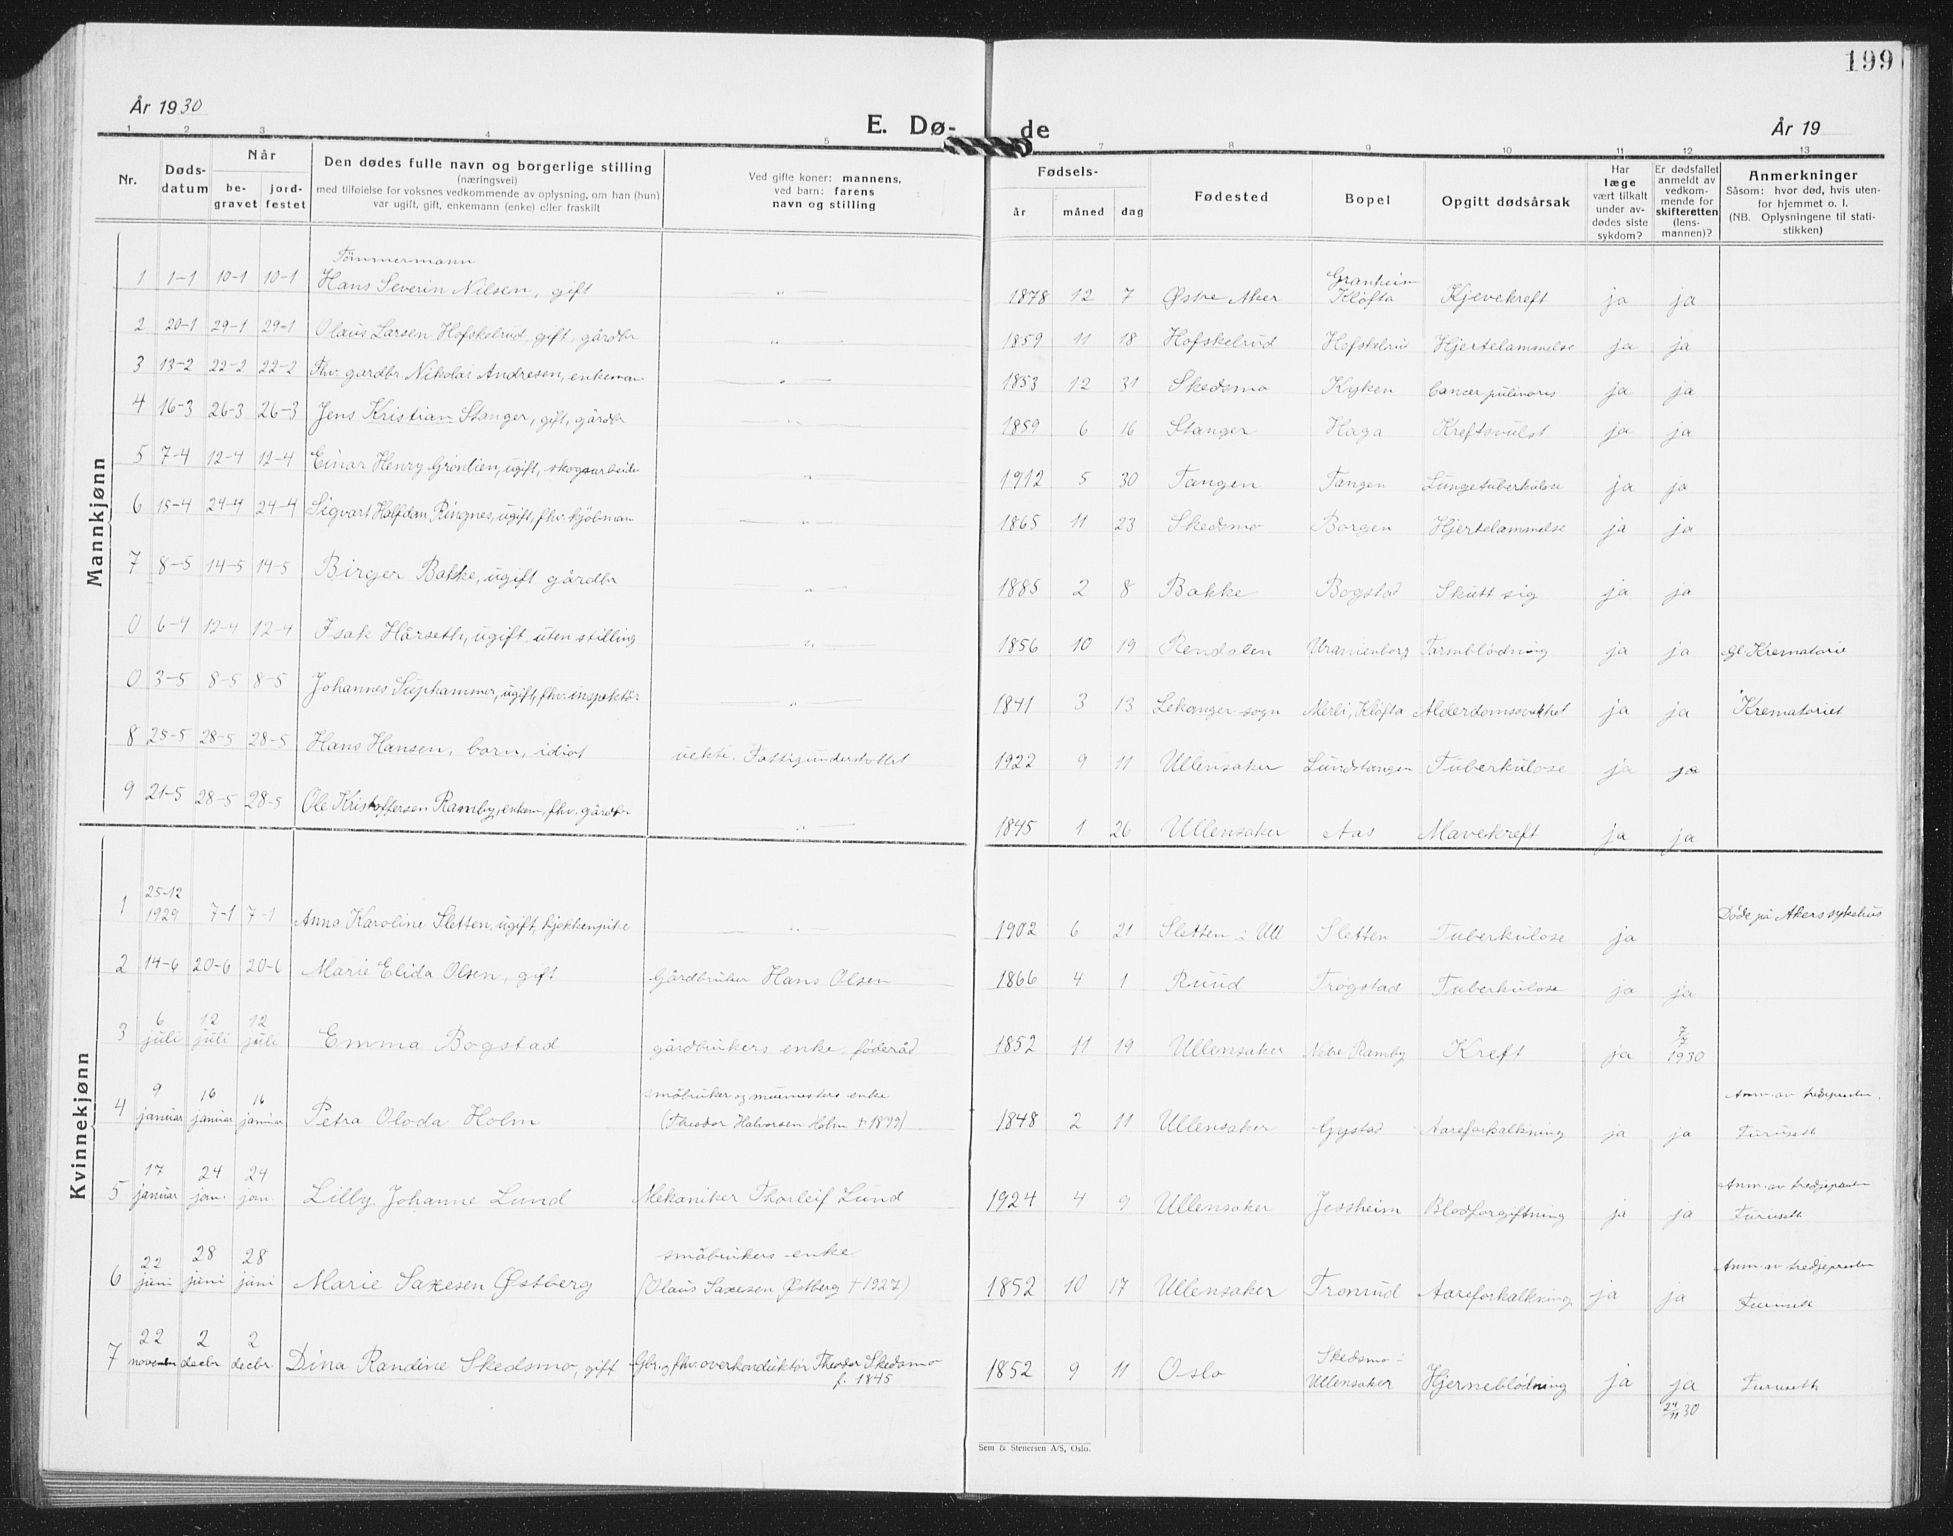 199
År 1930
E. Dø- de
År 19
1 2 3 4 5 7 8 9 10 11 12 13
Nr.
Døds-
datum
Når
be-
gravet
jord-
festet
Den dødes fulle navn og borgerlige stilling
(næringsvei)
med tilføielse for voksnes vedkommende av oplysning, om han (hun)
var ugift, gift, enkemann (enke) eller fraskilt
Ved gifte koner: mannens,
ved barn: farens
navn og stilling
Fødsels-
år måned dag
Fødested
Bopel
Opgitt dødsårsak
Har
læge
vært tilkalt
under av-
dødes siste
sykdom?
Er dødsfallet
anmeldt av
vedkom-
mende for
skifteretten
(lens-
mannen)?
Anmerkninger
Såsom: hvor død, hvis uten-
for hjemmet o. l.
(NB. Oplysningene til stati-
stikken)
Mannkjønn
Tömmermann Granheim
1 1-1 10-1 10-1 Hans Severin Nilsen, gift — " — 1878 12 7 Østre Aker Kløfta Kjevekreft ja ja
2 20-1 29-1 29-1 Olaus Larsen Hofskelrud, gift, gårdbr — " — 1859 11 18 Hofskelrud Hofskelrud Hjertelammelse ja ja
3 13-2 22-2 22-2 Fhv. gardbr. Nikolai Andresen, enkeman — " — 1853 12 31 Skedsmo Kyken Cancer pulmoris ja ja
4 16-3 26-3 26-3 Jens Kristian Stanger, gift, gårdbr 1859 6 16 Stanger Haga Kreftsvulst ja ja
5 7-4 12-4 12-4 Einar Henry Grøntien, ugift, skogsarbeide — " — 1912 5 30 Tangen Tangen Lungetuberkulose ja ja
6 15-4 24-4 24-4 Sigvart Halfdan Ringnes, ugift, fhv. kjöbman — " — 1865 11 23 Skedsmo Borgen Hjertelammelse ja ja
7 8-5 14-5 14-5 Birger Bakke, ugift gårdbr — " — 1885 2 8 Bakke Bogstad Skutt sig ja ja
0 6-4 12-4 12-4 Isak Hårseth, ugift, uten stilling — " — 1856 10 19 Rendalen Uranienborg Tarmblödning ja ja Gl Krematorie
0 3-5 8-5 8-5 Johannes Suphammer, ugift, fhv. inspektör — " — 1841 3 13 Lekanger sogn Merli, Kløfta Alderdomssvakhet ja ja " Krematoriet
8 25-5 28-5 28-5 Hans Hansen, barn, idiot uekte. Fattigunderstøttet 1922 9 11 Ullensaker Lundstangen Tuberkulose ja ja
9 21-5 28-5 28-5 Ole Kristoffersen Ramby, enkem, fhv. gårdbr — " — 1845 1 26 Ullensaker Aas Mavekreft ja ja
Kvinnekjønn
25-12
1 1929 7-1 7-1 Anna Karoline Sletten, ugift, kjøkkenpike — " — 1902 6 21 Sletten i Ull Sletten Tuberkulose ja Døde på Akers sykehus
2 14-6 20-6 20-6 Marie Elida Olsen, gift Gårdbruker Hans Olsen 1866 4 1 Ruud Trøgstad Tuberkulose ja ja
6 12 12 7/7
3 juli juli juli Emma Bogstad gårdbrukers enke, föderåd 1852 11 19 Ullensaker Nebre Ramby Kreft ja 1930
9 16 16 småbruker og murmesters enke Anm. av tredjepresten.
4 januar januar januar Petra Oloda Holm (Theodor Halvorsen Holm † 1899) 1848 2 11 Ullensaker Gystad Aareforkalkning ja ja Furuseth
17 24 24 Anm. av tredjepresten
5 januar jan. jan. Lilly Johanne Lund Mekaniker Thorleif Lund 1924 4 9 Ullensaker Jessheim Blodforgiftning ja ja Furuseth
22 28 28 småbrukers enke Anm. av tredjepresten
6 juni juni juni Marie Saxesen Østberg (Olaus Saxesen Østberg † 1927) 1852 10 17 Ullensaker Tronrud Aareforkalkning ja ja Furuseth
22 2 2 Skedsmo i
7 november decbr decbr. Dina Randine Skedsmo, gift Gbr. og fhv. overkonduktör Theodor Skedsmo 1852 9 11 Oslo Ullensaker Hjerneblödning ja ja Furuseth
f. 1845 24/11 30
Sem & Stenersen A/S, Oslo.